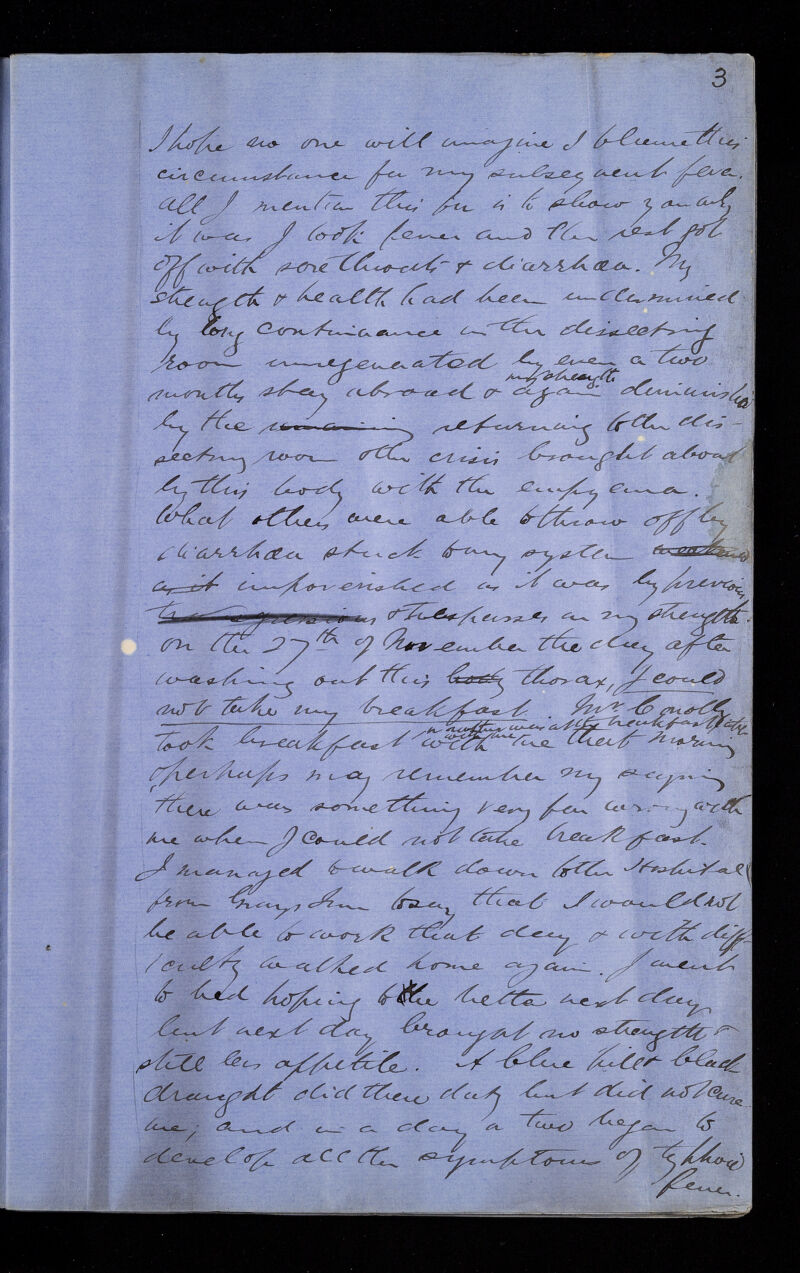 3
I hope no one will imagine I blame this
circumstance for my subsequent fever.
all I mention this for is to show you why
it was I took fever and the rest got
off with sore throats & diarrhœa. My
strength & health had been undermined
by long continuance in the dissecting
room unregenerated by even a two
months stay abroad & again my strength diminished
by the returning to the dis-
secting room & the crisis brought about
by this body with the empyema.
What others were able to throw off by
diarrhœa stuck to my system
as it impoverished as it was by previous
& trespasses on my strength.
on the 27th of November the day after
washing out this body thorax, I could
not take my breakfast. Mr Conolly
took breakfast with me that morning
& perhaps may remember my saying
there was something very far wrong with
me when I could not take breakfast.
I managed to walk down to the Hospital
from Grays Inn to say that I would not
be able to work that day & with diff-
iculty walked home again. I went
to bed hoping to be better next day
but next day brought no strength &
still less appetite. A blue pill & black
draught did there duty but did not cure
me; and in a day or two began to
develop all the symptoms of typhoid
fever.